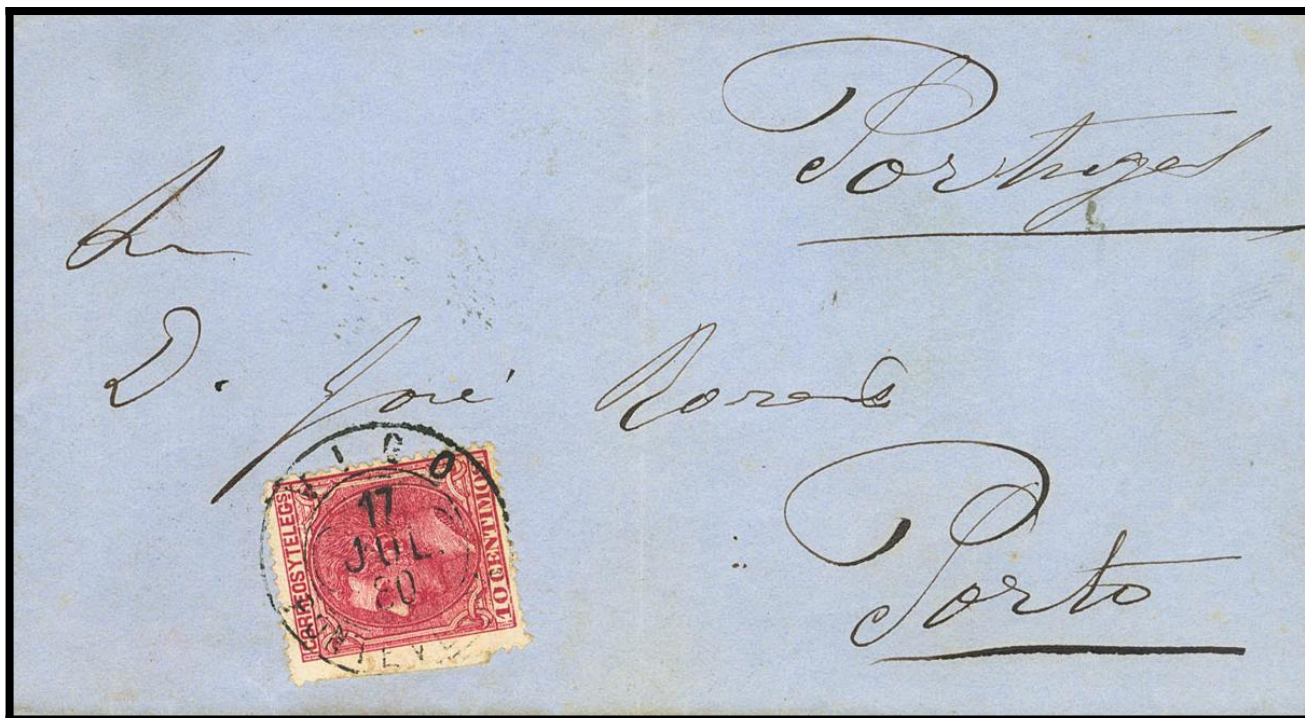 Portugal
Sr
D. José
Porto
VIGO
17
JUL.
80
CORREOS Y TELEGS
10 CENTIMOS